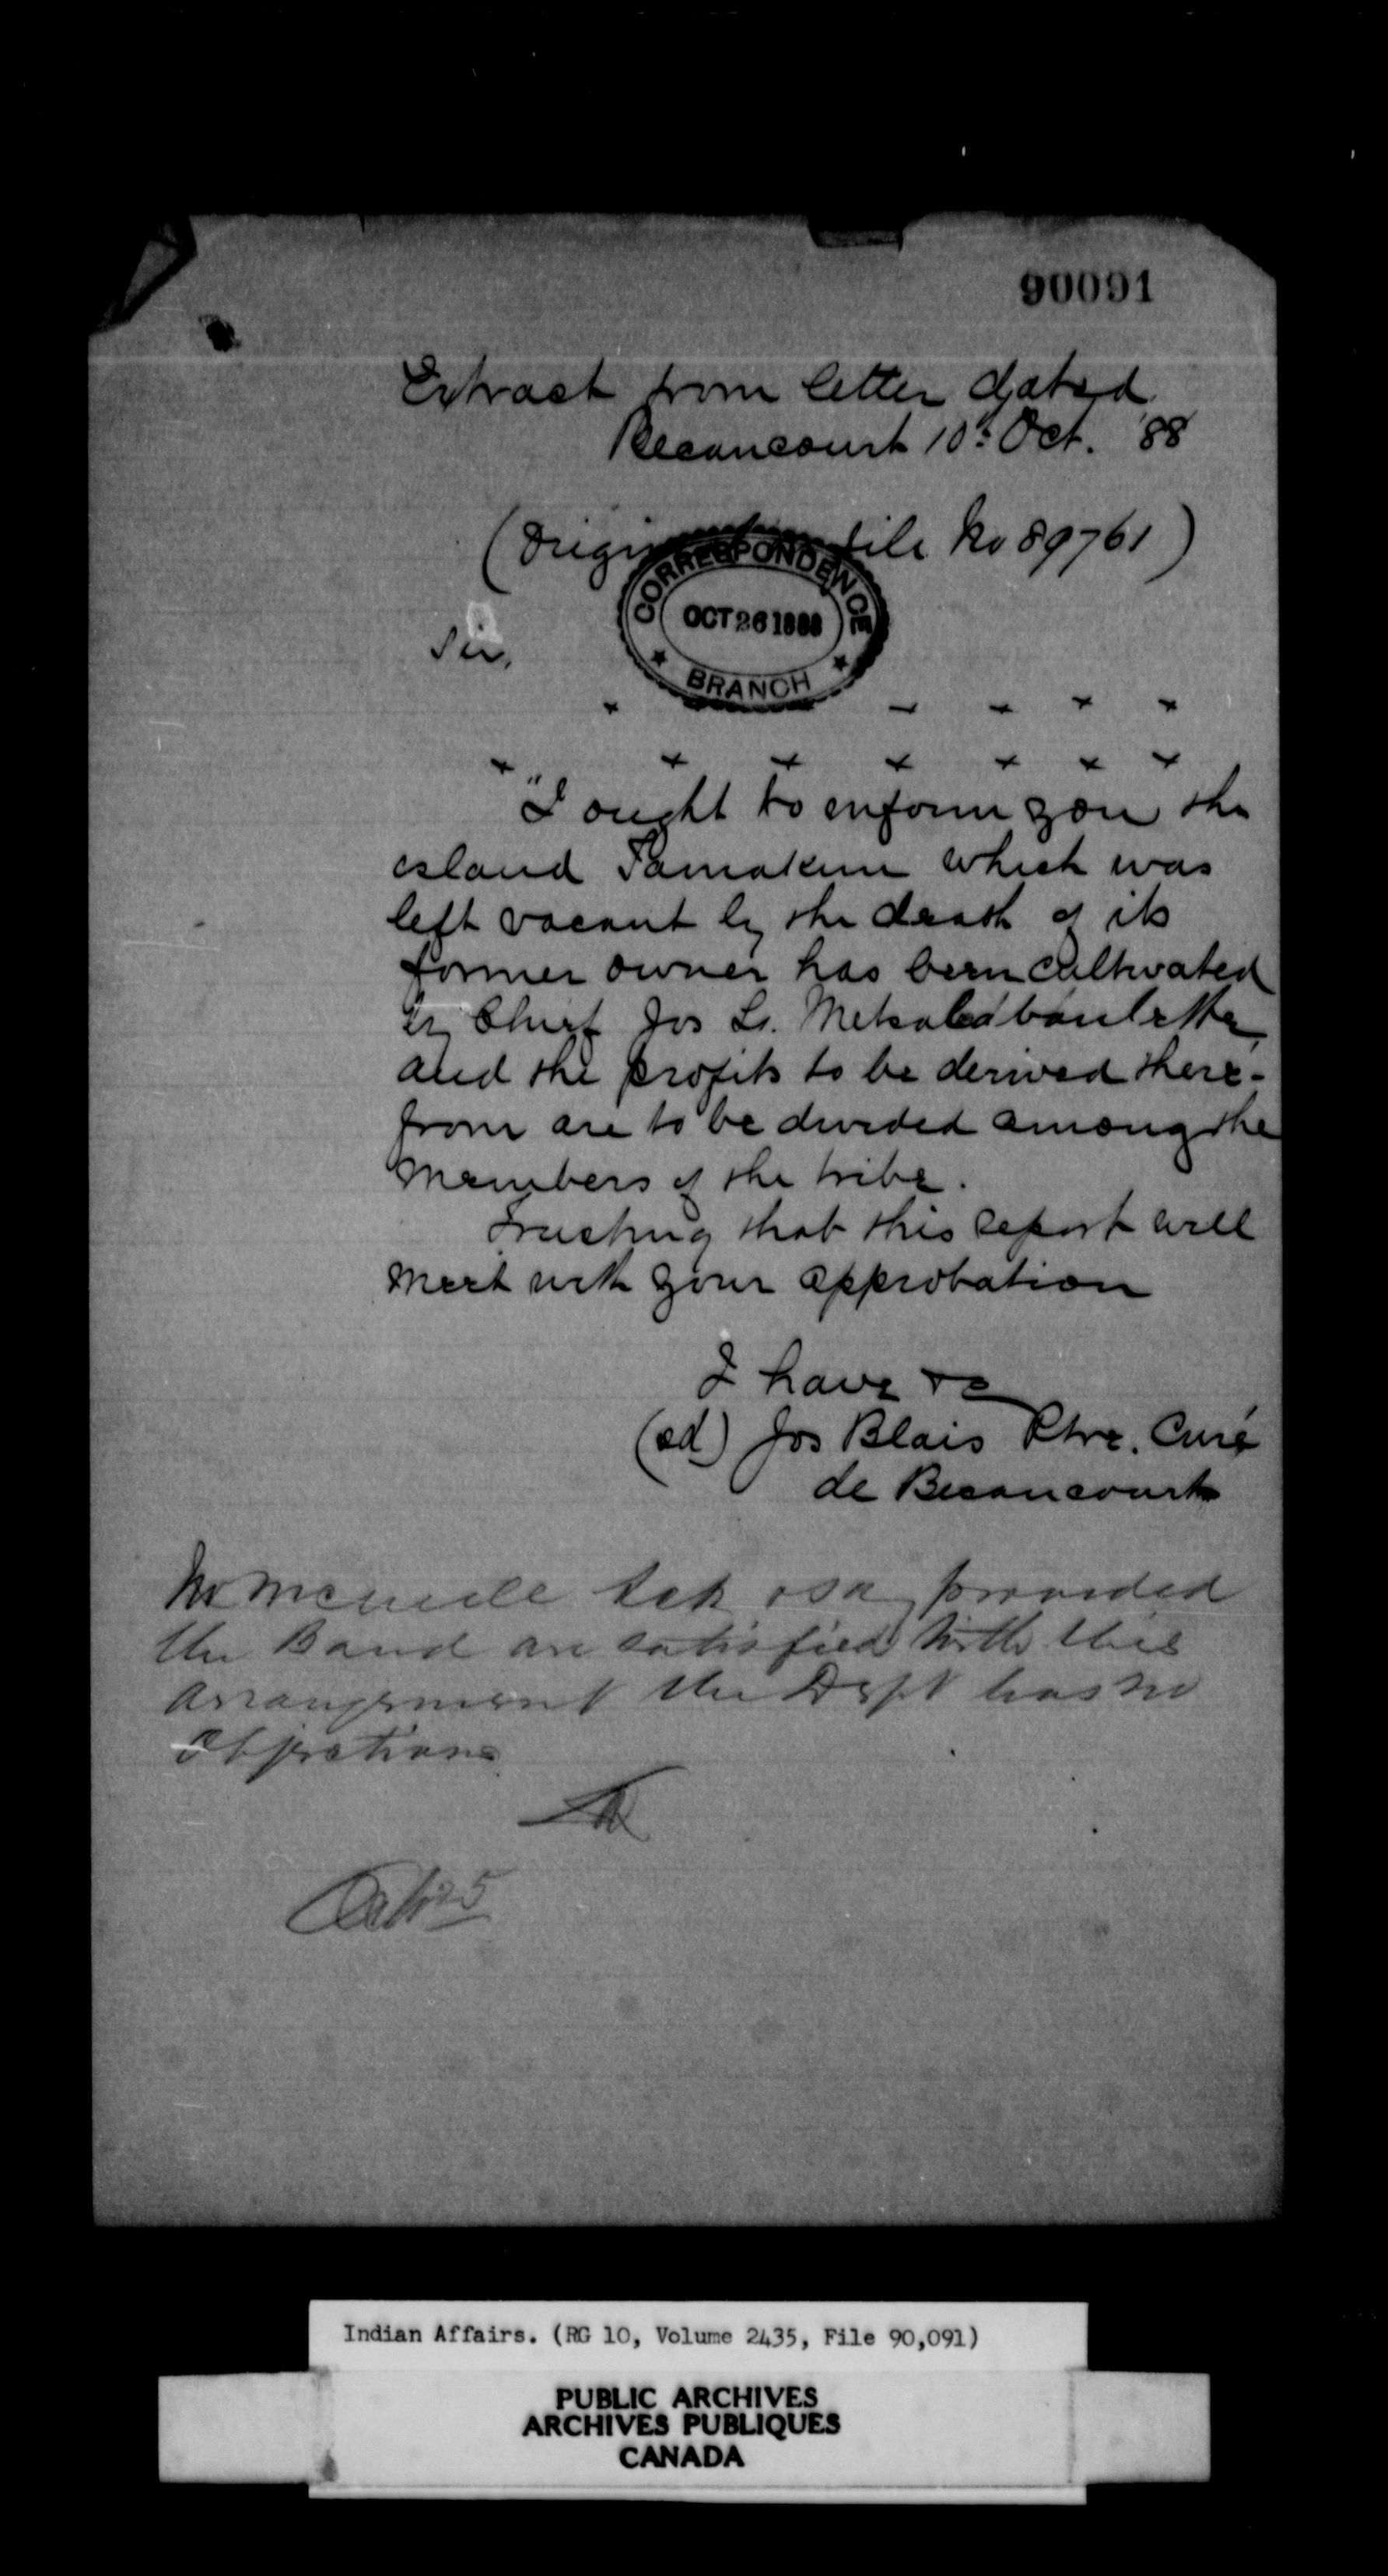 90091
Extract from letter dated
Becancourt 10th Oct. '88
(Original file No 89761)
CORRESPONDENCE
OCT 26 1888
BRANCH
Sir,
"I ought to inform you the
island Tamakim which was
left vacant by the death of its
former owner has been cultivated
by Chief Jos Ls.
and the profits to be derived there-
from are to be divided among the
members of the tribe.
Trusting that this report will
meet with your approbation
I have &c
(sd) Jos Blais Ptre. Curé
de Becancourt
Mr McNeill Ack & say provided
the Band are satisfied with this
arrangement the Dept has no
objections
Oct 25
Indian Affairs. (RG 10, Volume 2435, File 90,091)
PUBLIC ARCHIVES
ARCHIVES PUBLIQUES
CANADA